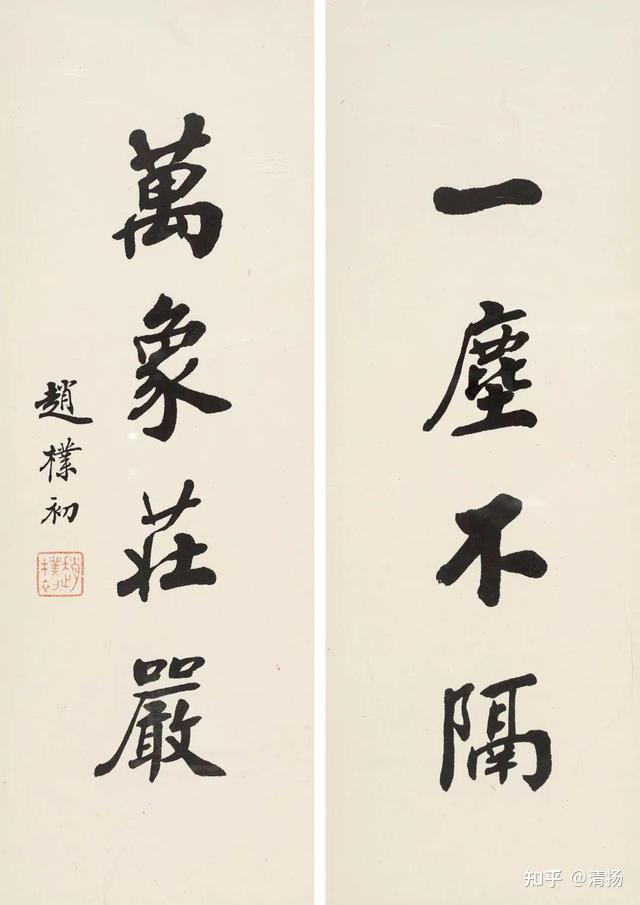 一塵不隔
萬象莊嚴
趙樸初
趙樸初
知乎 @清扬